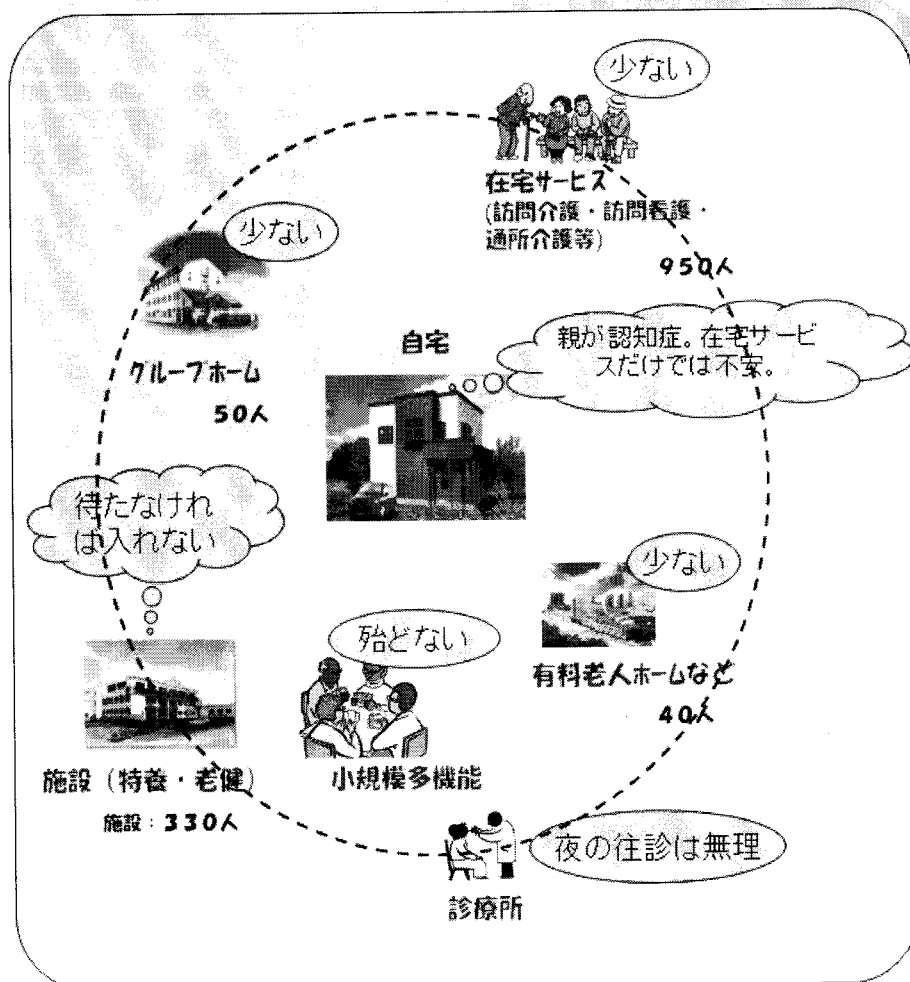 少ない
在宅サービス
(訪問介護・訪問看護・
通所介護等)
950人
少ない
グループホーム
50人
自宅
親が認知症。在宅サービ
スだけでは不安。
待たなけれ
ば入れない
少ない
有料老人ホームなど
40人
殆どない
小規模多機能
施設（特養・老健）
施設：330人
夜の往診は無理
診療所